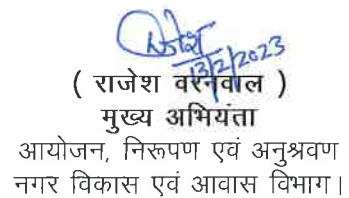 राजेश
13/2/2023
( राजेश वरनवाल )
मुख्य अभियंता
आयोजन, निरूपण एवं अनुश्रवण
नगर विकास एवं आवास विभाग।